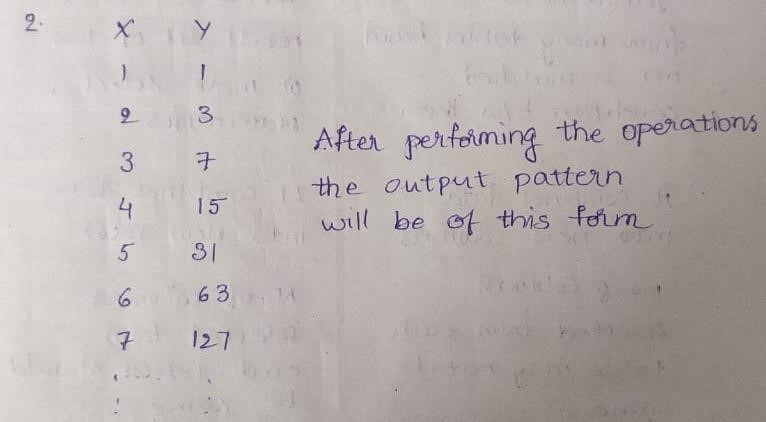 2. X Y
1 1
2 3
3 7
4 15
5 31
6 63
7 127
. .
: :
After performing the operations
the output pattern
will be of this form